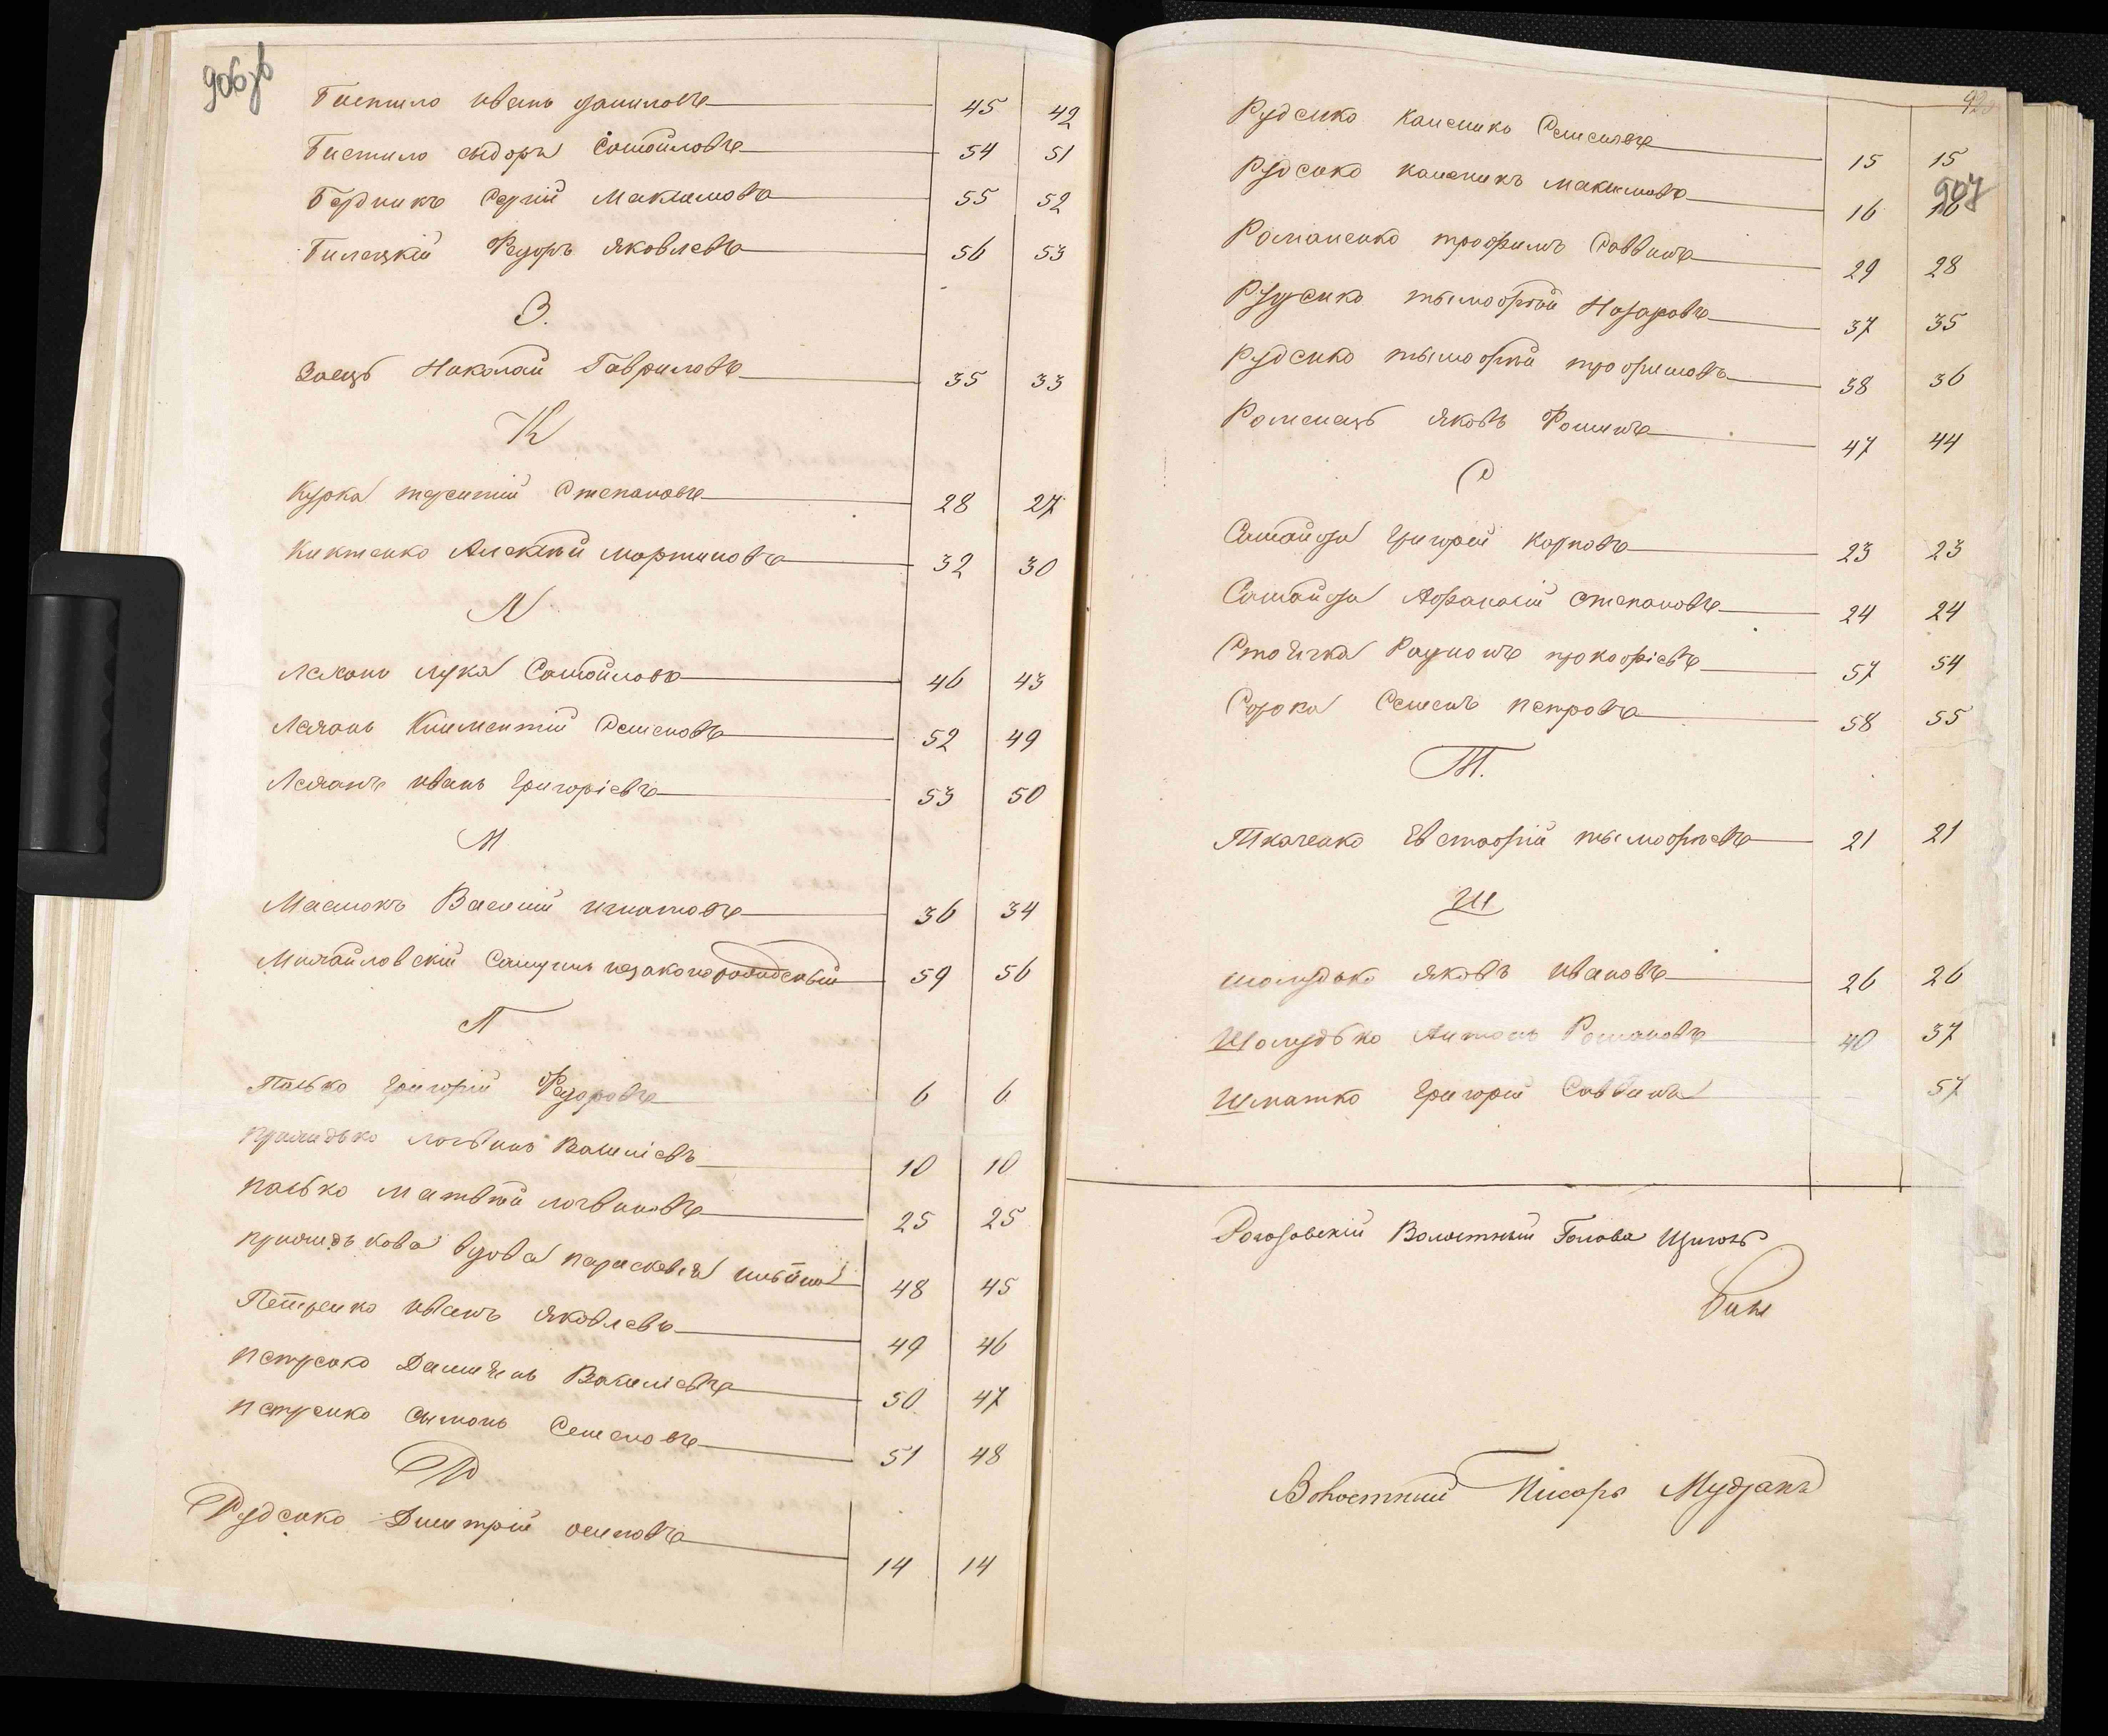 906зв
Гиспило иванъ даниловъ 45 42
Гиспило сыдоръ Самойловъ 54 51
Бердникъ Сергій Максимовъ 55 52
Билецкій Федоръ Яковлевъ 56 53
З.
Заецъ Николай Гавриловъ 35 33
К
Курка терентій Степановъ 28 27
Киктенко Алексѣй мартиновъ 32 30
Л
Лехань лука Самойловъ 46 43
Лехань Климентій Семеновъ 52 49
Леханъ иванъ Григоріевъ 53 50
М
Маслюкъ Василій игнатовъ 36 34
Михайловскій Самуилъ незаконорожденый 59 56
П
Палько Григорій Федоровъ 6 6
Прихидько логвинъ Василіевъ 10 10
палько матвѣй логвиновъ 25 25
прихидькова вдова параскевія 48 45
Петренко иванъ Яковлевъ 49 46
петренко Данило Василіевъ 50 47
петренко Сымонъ Семеновъ 51 48
Р
Руденко Дмитрій осиповъ 14 14
907
Руденко каленикъ Семеновъ 15 15
Руденко каленикъ максимовъ 16 16
Романенко трофимъ Саввинъ 29 28
Руденко тымофѣй Назаровъ 37 35
Руденко тымофѣй трофимовъ 38 36
Роменецъ Яковъ Фоминъ 47 44
С
Самойда Григорій карповъ 23 23
Самойда Афанасій степановъ 24 24
Стоячка Родионъ прокофіевъ 57 54
Сорока Семенъ петровъ 58 55
Т.
Ткаченко Евстафій тымофѣевъ 21 21
Ш
шолудько Яковъ ивановъ 26 26
Шолудько Антонъ Романовъ 40 37
Шматко Григорій Саввинъ 57
Рогозовскій Волостный Голова
Волостный Писарь Мудракъ